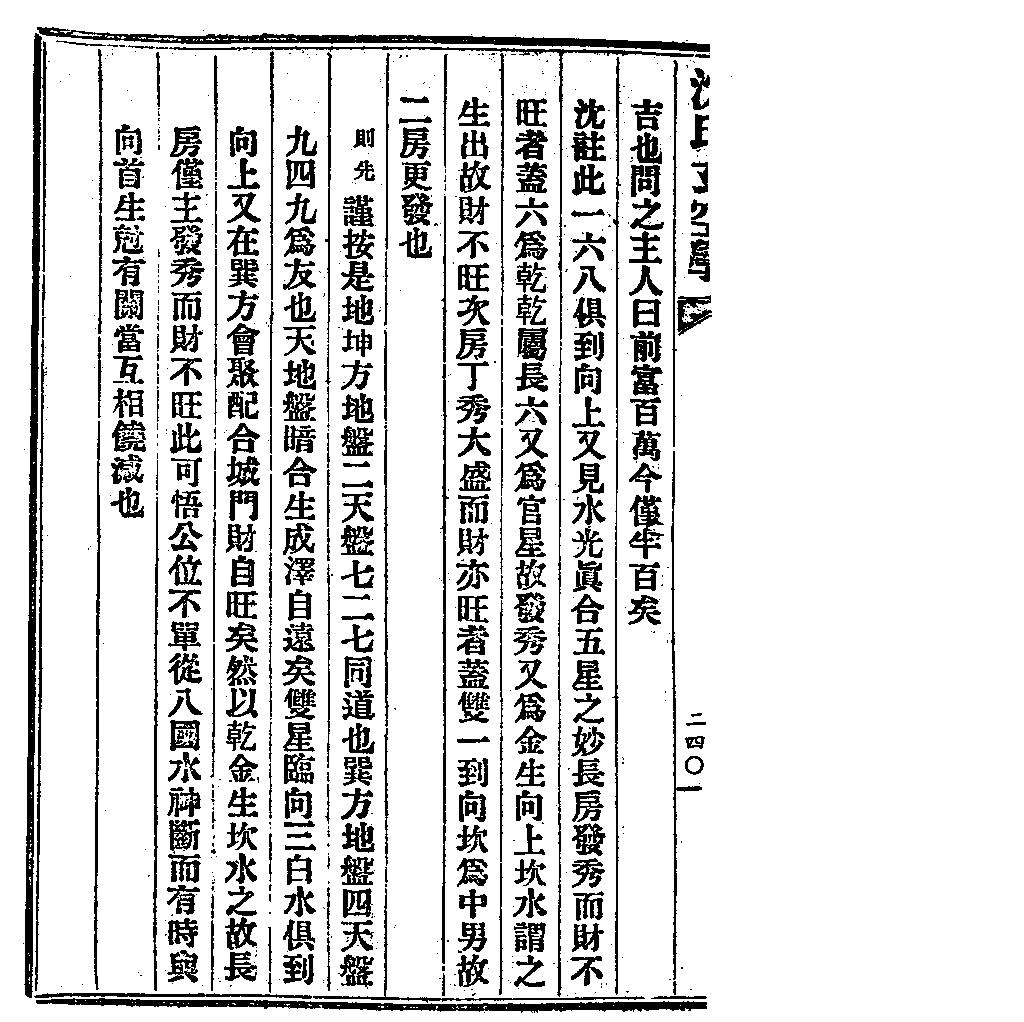 沈氏玄空學
二四〇一
吉也問之主人曰前富百萬今僅半百矣
沈註此一六八俱到向上又見水光眞合五星之妙長房發秀而財不
旺者蓋六爲乾乾屬長六又爲官星故發秀又爲金生向上坎水謂之
生出故財不旺次房丁秀大盛而財亦旺者蓋雙一到向坎爲中男故
二房更發也
則先謹按是地坤方地盤二天盤七二七同道也巽方地盤四天盤
九四九爲友也天地盤暗合生成澤自遠矣雙星臨向三白水俱到
向上又在巽方會聚配合城門財自旺矣然以乾金生坎水之故長
房僅主發秀而財不旺此可悟公位不單從八國水神斷而有時與
向首生尅有關當互相饒減也